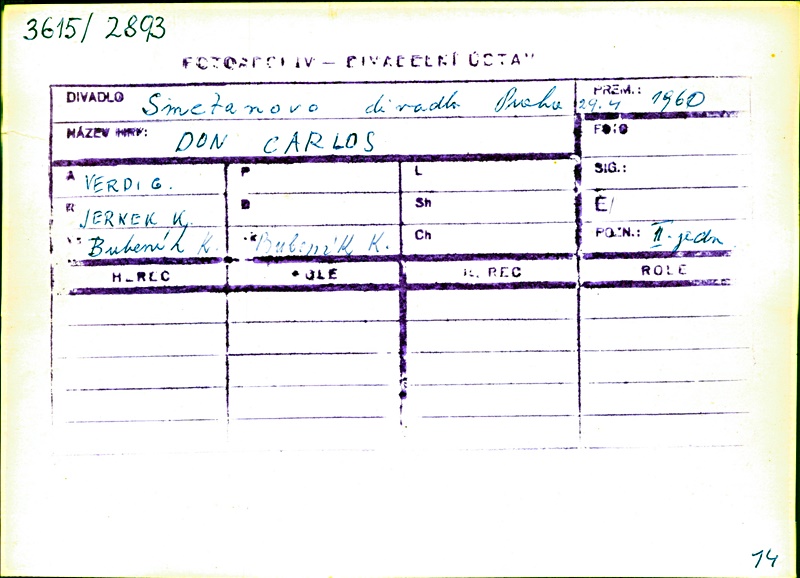 3615/ 2893
FOTOARCHIV – DIVADELNÍ ÚSTAV
DIVADLO Smetanovo divadlo Praha PREM.: 29.4 1960
NÁZEV HRY: DON CARLOS FOTO
A VERDI G. P L SIG.:
R JERNEK K. D Sh Č/
Bubeník K. Bubeník K. Ch POZN.: II. jedn
HEREC ROLE HEREC ROLE
14